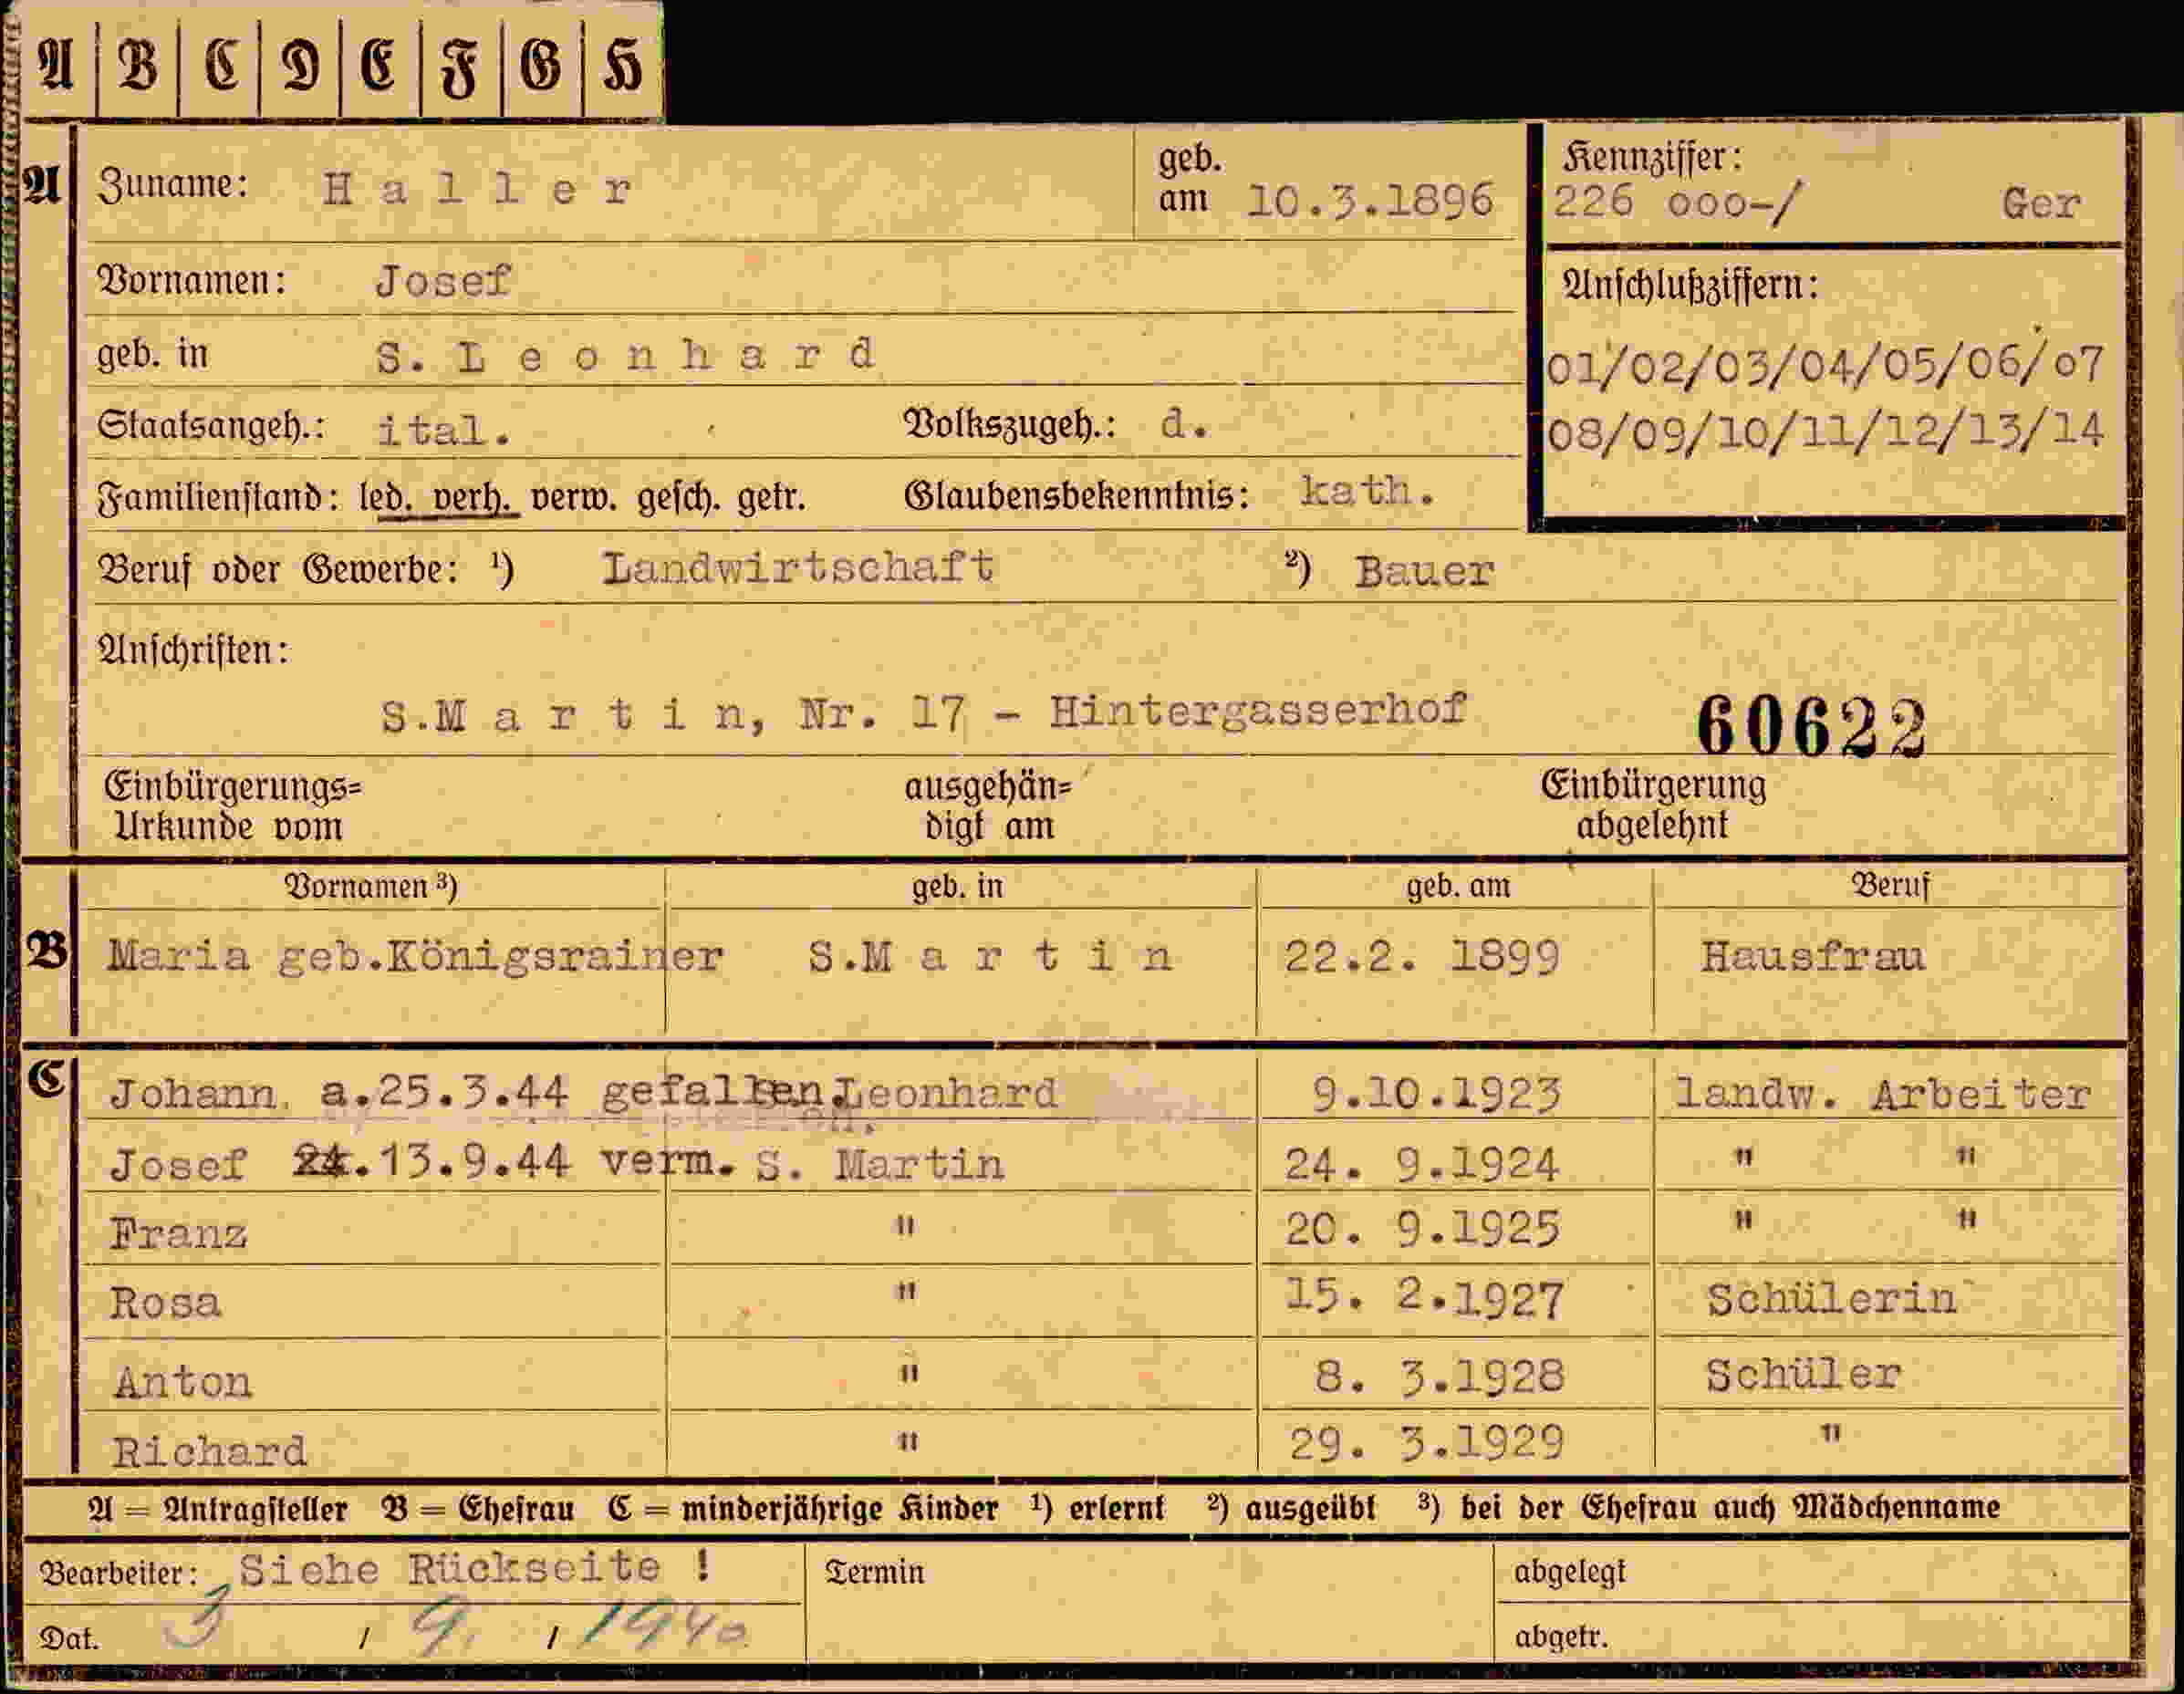 A B C D E F G H
A Zuname: Haller geb. am 10.3.1896 Kennziffer: 226 000-/ Ger
Vornamen: Josef
Anschlußziffern:
geb. in S. Leonhard
01/02/03/04/05/06/07
Staatsangeh.: ital. Volkszugeh.: d.
08/09/10/11/12/13/14
Familienstand: led. verh. verw. gesch. getr. Glaubensbekenntnis: kath.
Beruf oder Gewerbe: ¹) Landwirtschaft ²) Bauer
Anschriften:
S.Martin, Nr. 17 - Hintergasserhof 60622
Einbürgerungs= ausgehän= Einbürgerung
Urkunde vom digt am abgelehnt
Vornamen ³) geb. in geb. am Beruf
B Maria geb.Königsrainer S.Martin 22.2. 1899 Hausfrau
C Johann a.25.3.44 gefallen Leonhard 9.10.1923 landw. Arbeiter
Josef 13.9.44 verm. S. Martin 24. 9.1924 " "
Franz " 20. 9.1925 " "
Rosa " 15. 2.1927 Schülerin
Anton " 8. 3.1928 Schüler
Richard " 29. 3.1929 "
A = Antragsteller B = Ehefrau C = minderjährige Kinder ¹) erlernt ²) ausgeübt ³) bei der Ehefrau auch Mädchenname
Bearbeiter: Siehe Rückseite ! Termin abgelegt
Dat. 3 / 9. / 1940 abgetr.